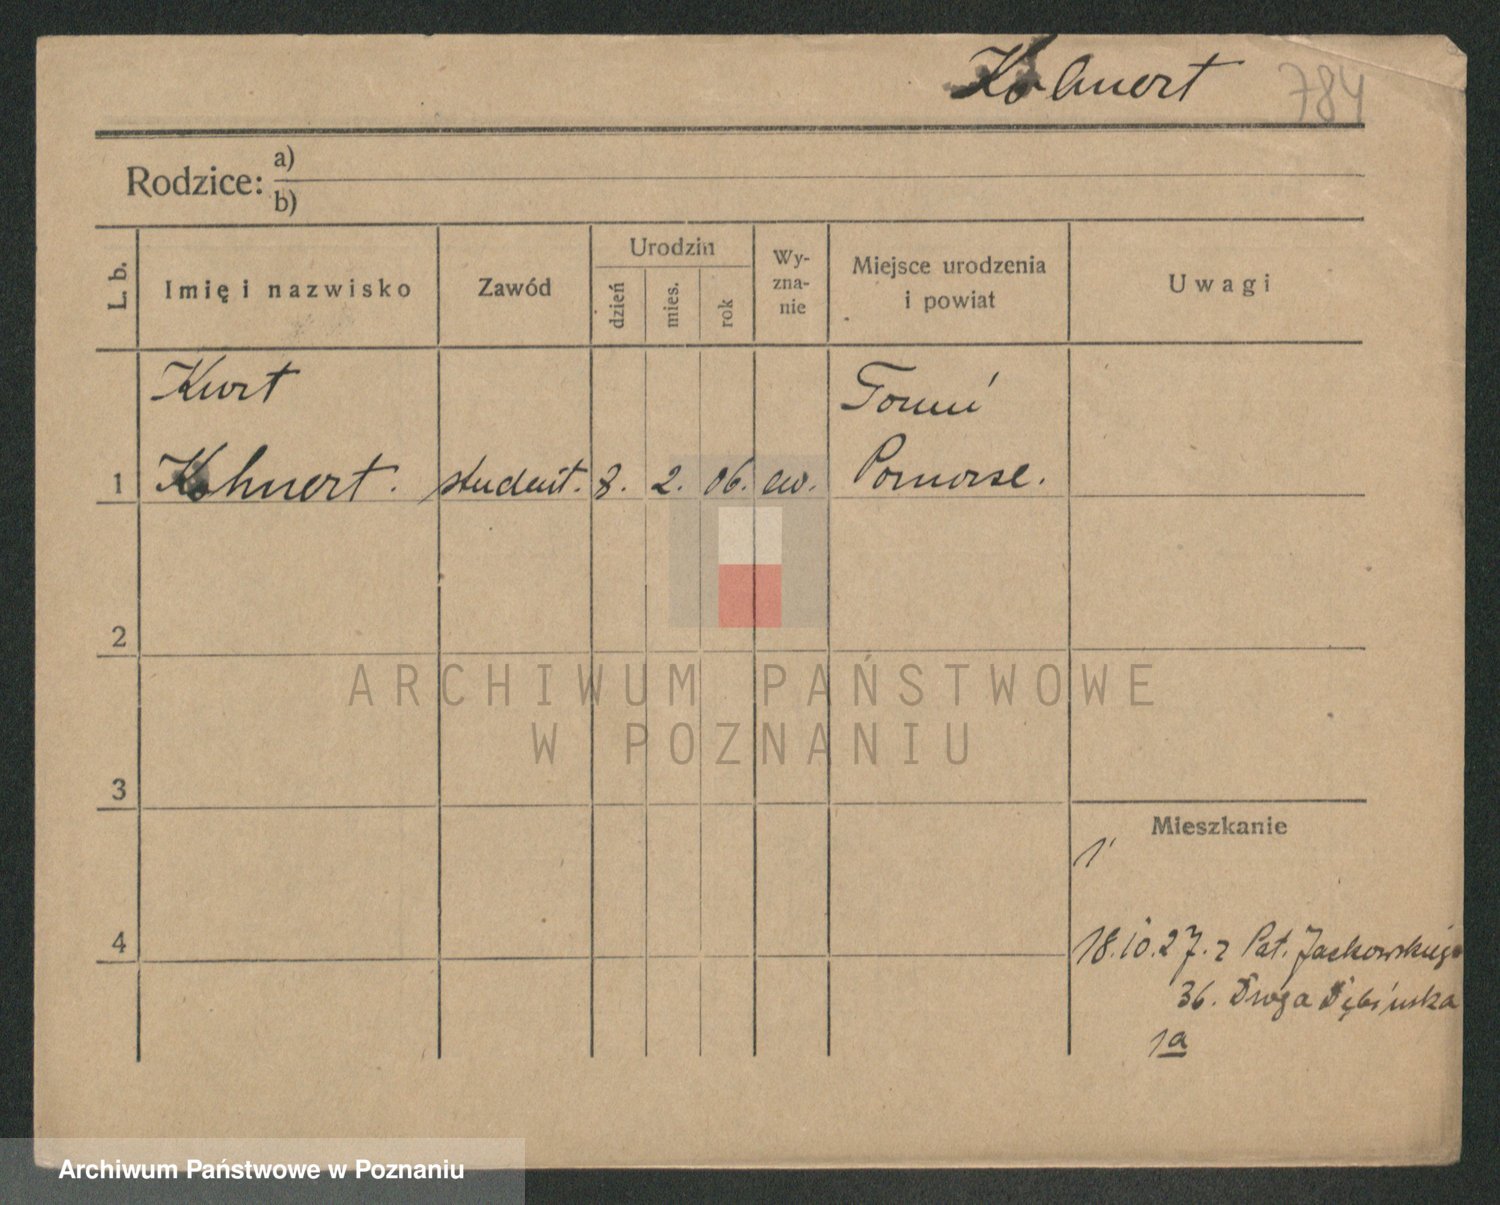 Kohnert 784
Rodzice: a)
b)
L. b.
Imię i nazwisko
Zawód
Urodzin
dzień
mies.
rok
Wy-
zna-
nie
Miejsce urodzenia
i powiat
Uwagi
Kurt
Toruń
1 Kohnert. student. 8. 2. 06. ew. Pomorse.
2
ARCHIWUM PAŃSTWOWE
W POZNANIU
3
Mieszkanie
1
4
18.10.27. z Pat. Jackowskiego
36. Droga Dębińska
1a
Archiwum Państwowe w Poznaniu